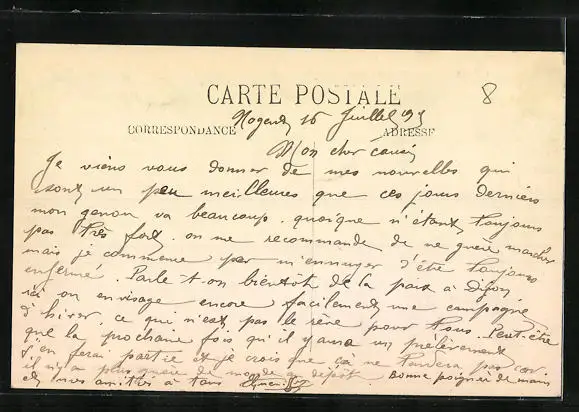 8
CARTE POSTALE
Nogent 16 Juillet
CORRESPONDANCE ADRESSE
Mon cher cousin
Je viens vous donner de mes nouvelles qui
sont un peu meilleures que ces jours derniers
mon genou va beaucoup, quoique n'étant toujours
pas très fort, on me recommande de ne guère marcher
mais je commence par m'ennuyer d'être toujours
enfermé. Parle-t-on bientôt de la paix à Dijon
ici on envisage encore facilement une campagne
d'hiver, ce qui n'est pas le rêve pour tous. Peut-être
que la prochaine fois qu'il y aura un prélèvement
j'en ferai partie et je crois que ça ne tardera pas car
il n'y a plus guère de monde au dépôt. Bonne poignée de main
et mes amitiés à tous